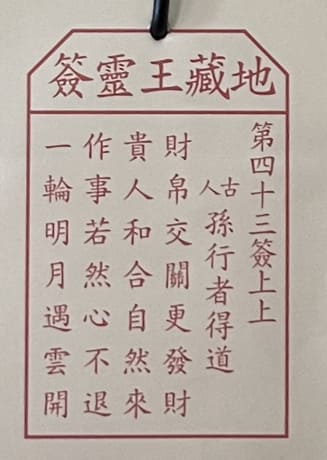 地藏王靈簽
第四十三簽上上
古人 孫行者得道
財帛交關更發財
貴人和合自然來
作事若然心不退
一輪明月遇雲開